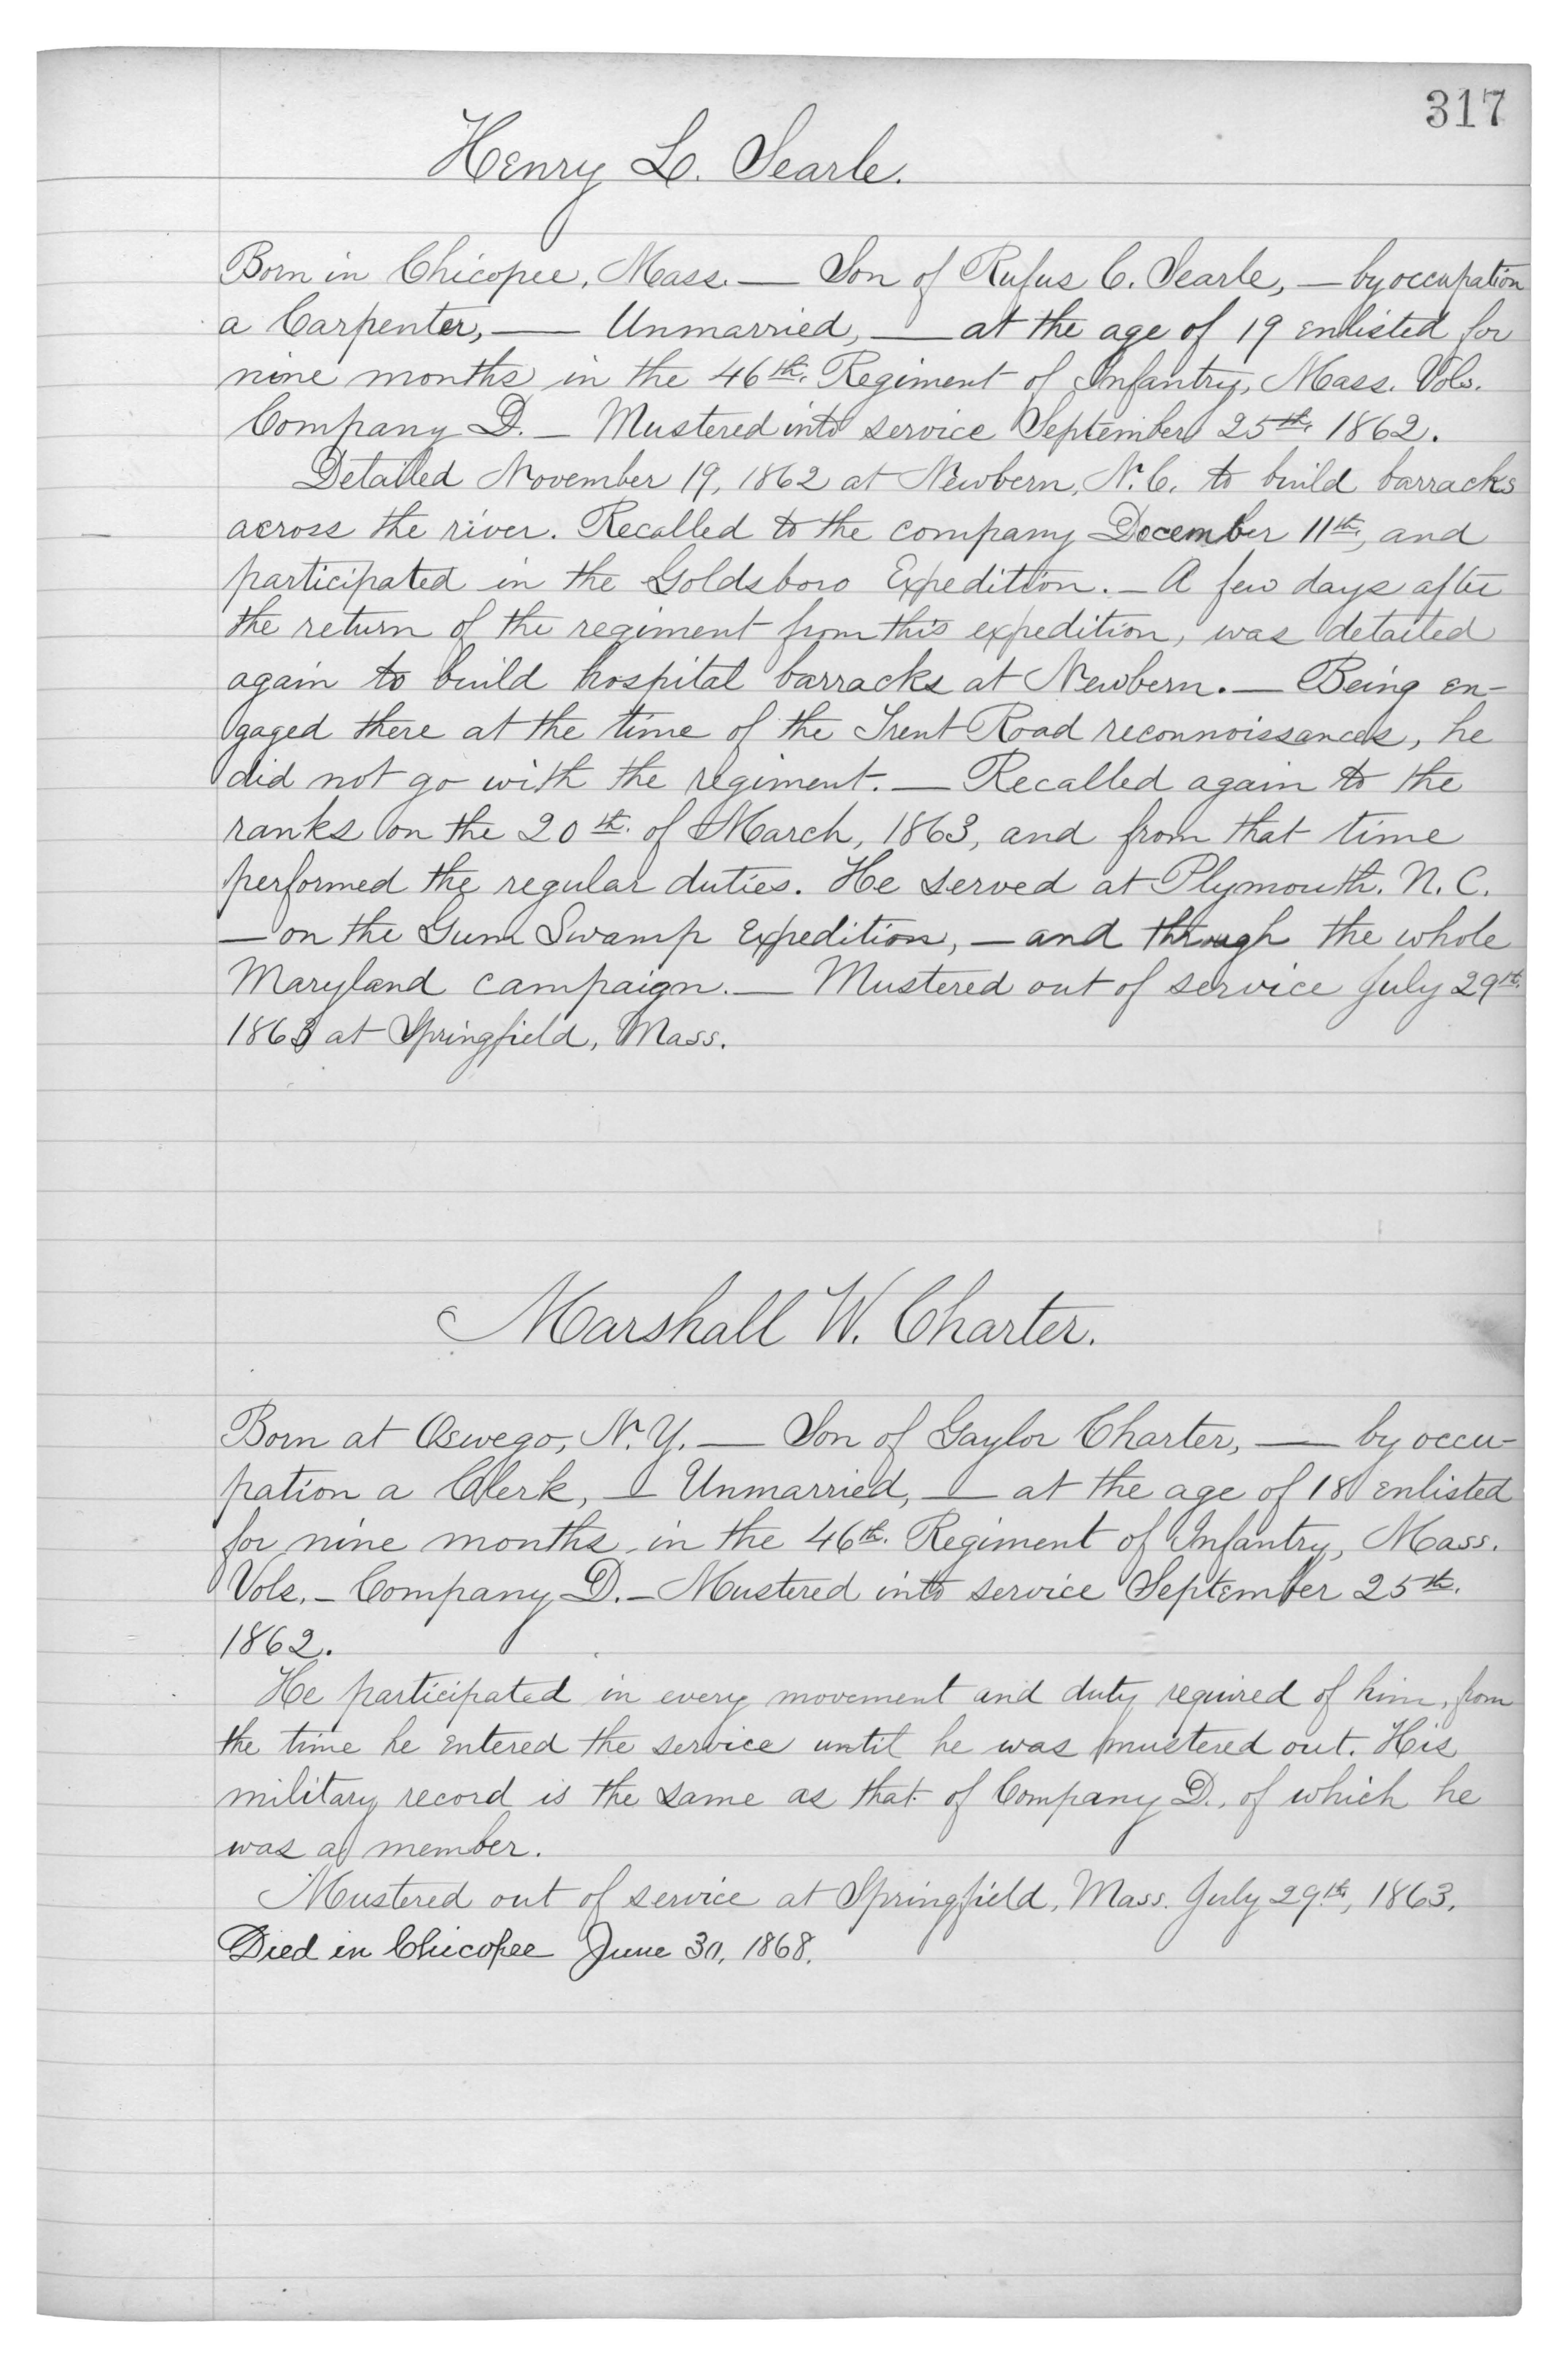 317
Henry L. Searle.
Born in Chicopee, Mass. — Son of Rufus C. Searle, — by occupation
a Carpenter, — Unmarried, — at the age of 19 enlisted for
nine months in the 46th. Regiment of Infantry, Mass. Vols.
Company D. — Mustered into service September 25th. 1862.
Detailed November 19, 1862 at Newbern, N.C. to build barracks
across the river. Recalled to the company December 11th, and
participated in the Goldsboro Expedition. — A few days after
the return of the regiment from this expedition, was detailed
again to build hospital barracks at Newbern. — Being en-
gaged there at the time of the Trent Road reconnoissances, he
did not go with the regiment. — Recalled again to the
ranks on the 20th. of March, 1863, and from that time
performed the regular duties. He served at Plymouth. N.C.
— on the Gum Swamp Expedition, — and through the whole
Maryland campaign. — Mustered out of service July 29th.
1863 at Springfield, Mass.
Marshall W. Charter.
Born at Oswego, N.Y. — Son of Gaylor Charter, — by occu-
pation a Clerk, — Unmarried, — at the age of 18 enlisted
for nine months in the 46th. Regiment of Infantry, Mass.
Vols. — Company D. — Mustered into service September 25th.
1862.
He participated in every movement and duty required of him, from
the time he entered the service until he was mustered out. His
military record is the same as that of Company D., of which he
was a member.
Mustered out of service at Springfield, Mass. July 29th, 1863.
Died in Chicopee June 30, 1868.